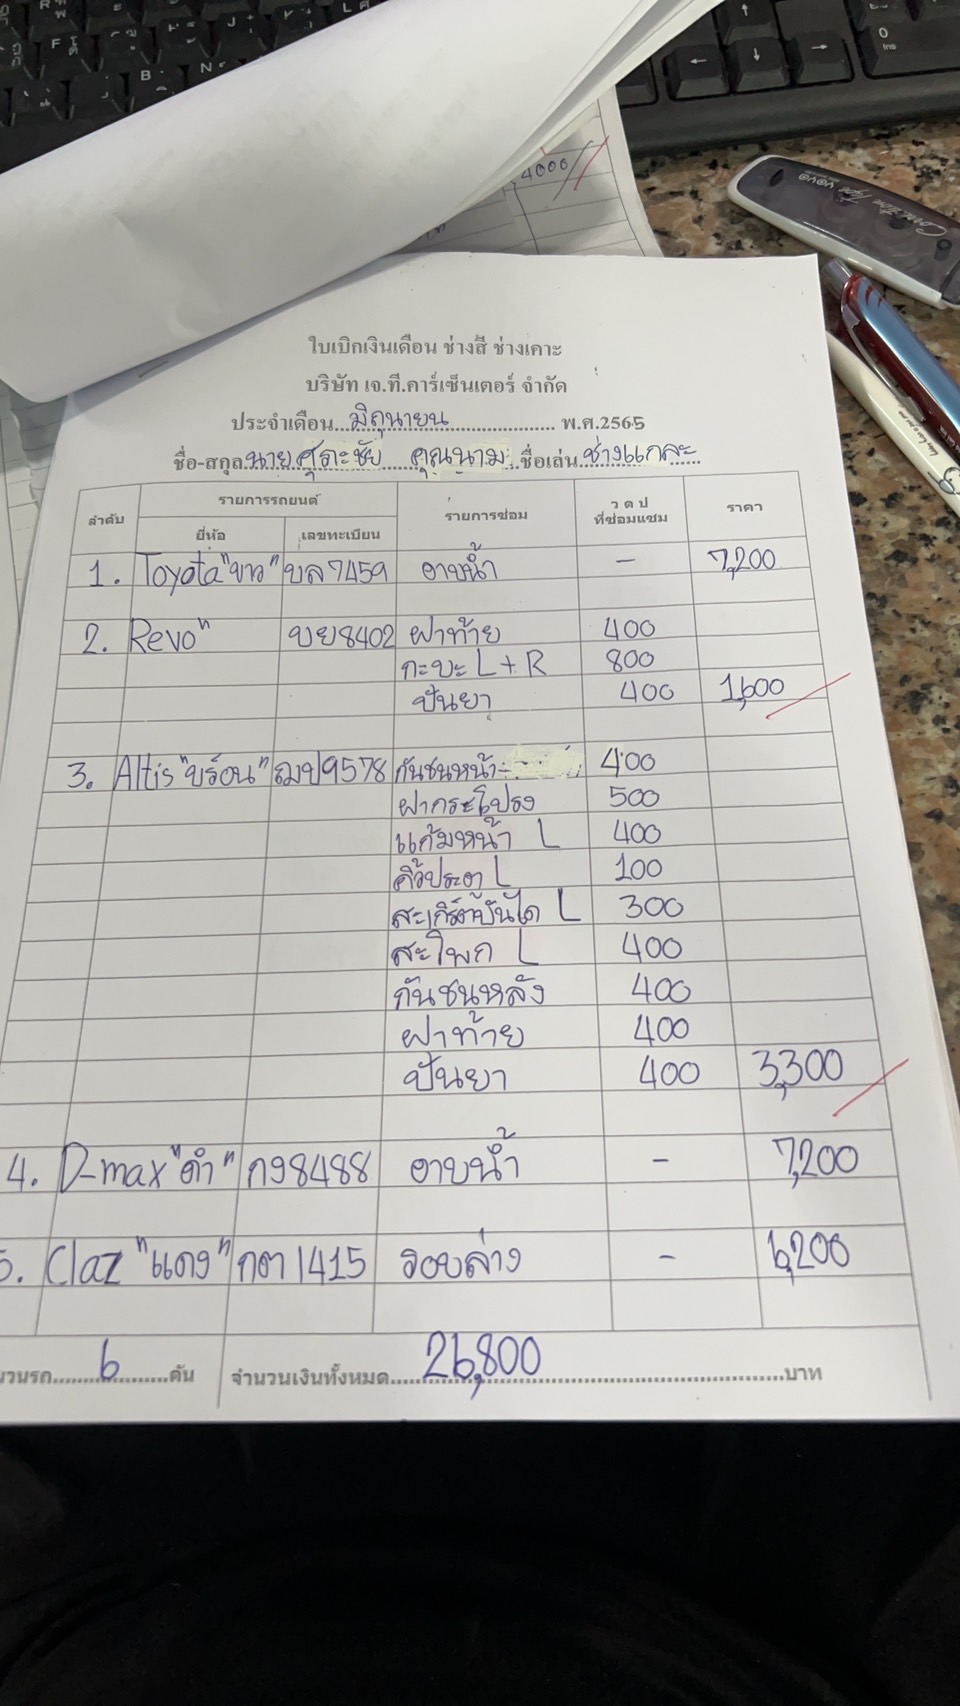 4000
ใบเบิกเงินเดือน ช่างสี ช่างเคาะ
บริษัท เจ.ที.คาร์เซ็นเตอร์ จำกัด
ประจำเดือน...มิถุนายน... พ.ศ.2565
ชื่อ-สกุล.นายศุระชัย คุณนาม.ชื่อเล่น.ช่างแกละ
ลำดับ รายการรถยนต์ รายการซ่อม ว ด ป ที่ซ่อมแซม ราคา
ยี่ห้อ เลขทะเบียน
1. Toyota "ขาว" บล7459 อาบน้ำ - 7,200
2. Revo" บย8402 ฝาท้าย 400
กะบะ L + R 800
ปันยา 400 1,600
3. Altis "บร์อน" ฌป9578 กันชนหน้า 400
ฝากระโปรง 500
แก้มหน้า L 400
คิ้วประตู L 100
สะเกิร์ตบันได L 300
สะโพก L 400
กันชนหลัง 400
ฝาท้าย 400
ปันยา 400 3,300
4. D-max "ดำ" กง8488 อาบน้ำ - 7,200
5. Claz "แดง" กต1415 รอบล่าง - 6,200
นวนรถ...6...คัน จำนวนเงินทั้งหมด...26,800...บาท
Correction Tape
0
Ins
R
F
B
N
J
K
L